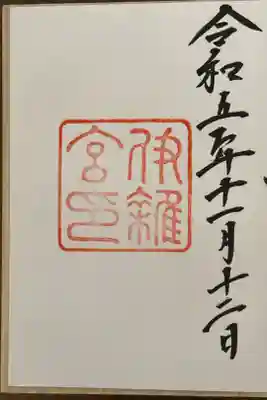 令和五年十一月十二日
伊雜
宮印